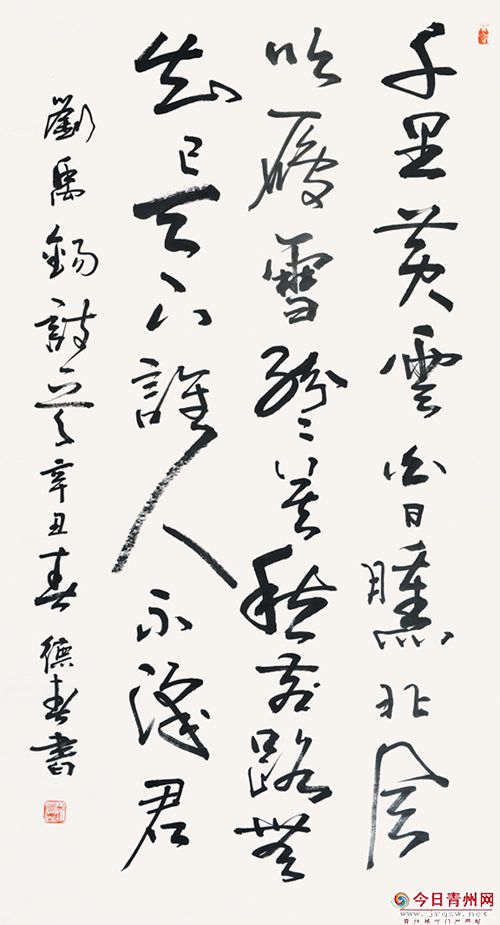 千里黃雲白日曛北風
吹雁雪紛紛莫愁前路無
知己天下誰人不識君
劉禹錫詩一首辛丑春德春書
今日青州网
www.jrqzw.net